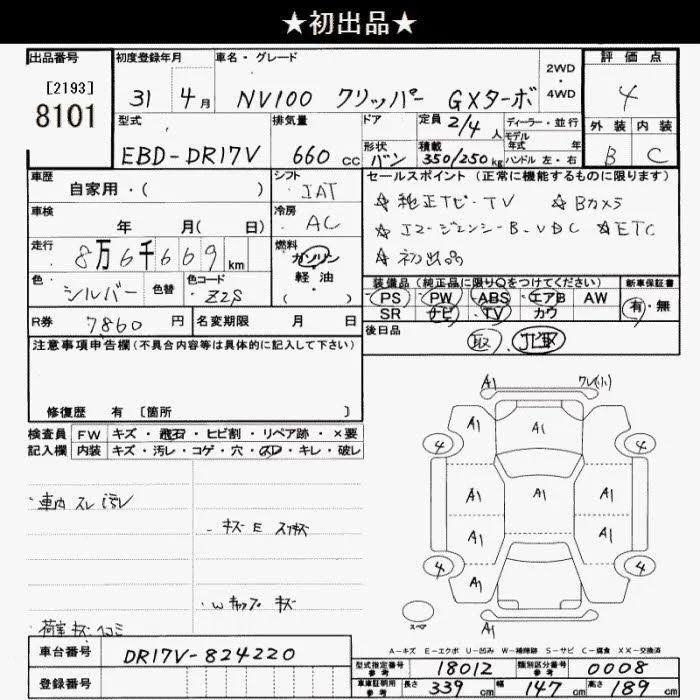 ★初出品★
出品番号
[2193]
8101
初度登録年月
31年 4月
車名・グレード
NV100 クリッパー GXターボ
2WD・4WD
評価点
4
外装 内装
B C
型式
EBD-DR17V
排気量
660 cc
ドア
形状
バン
定員
2/4人
積載
350/250kg
ディーラー・並行
モデル年式 年
ハンドル 左・右
車歴
自家用・( )
シフト
IAT
セールスポイント (正常に機能するものに限ります)
☆純正ナビ・TV ☆Bカメラ
☆エマージェンシーB・VDC ☆ETC
☆初出品
車検
年 月( 日)
冷房
AC
走行
8万6千669km
燃料
ガソリン
軽・油
( )
色
シルバー
色替
色コード
Z2S
装備品 (純正品に限り○をつけてください)
PS PW ABS エアB AW
SR ナビ TV カワ
新車保証書
有・無
R券
7860円
名変期限 月 日
後日品
取 ナビ取
注意事項申告欄 (不具合内容等は具体的に記入して下さい)
修復歴 有 [箇所 ]
検査員記入欄
FW キズ・飛石・ヒビ割・リペア跡・×要
内装 キズ・汚レ・コゲ・穴・スレ・キレ・破レ
・車内 スレ 汚レ
・キズ E スリキズ
・Wキャップ キズ
・荷室 キズ ヘコミ
A1 ワレ(小)
A1 A1 A1
4 4
A1 A1 A1
A1 A1
4 4
A1
スペア
A1
A-キズ E-エクボ U-凹み W-補修跡 S-サビ C-腐食 XX-交換済
車台番号
DR17V-824220
登録番号
型式指定番号 参考
18012
類別区分番号 参考
0008
車庫証明用 参考
長さ 339cm 幅 147cm 高さ 189cm